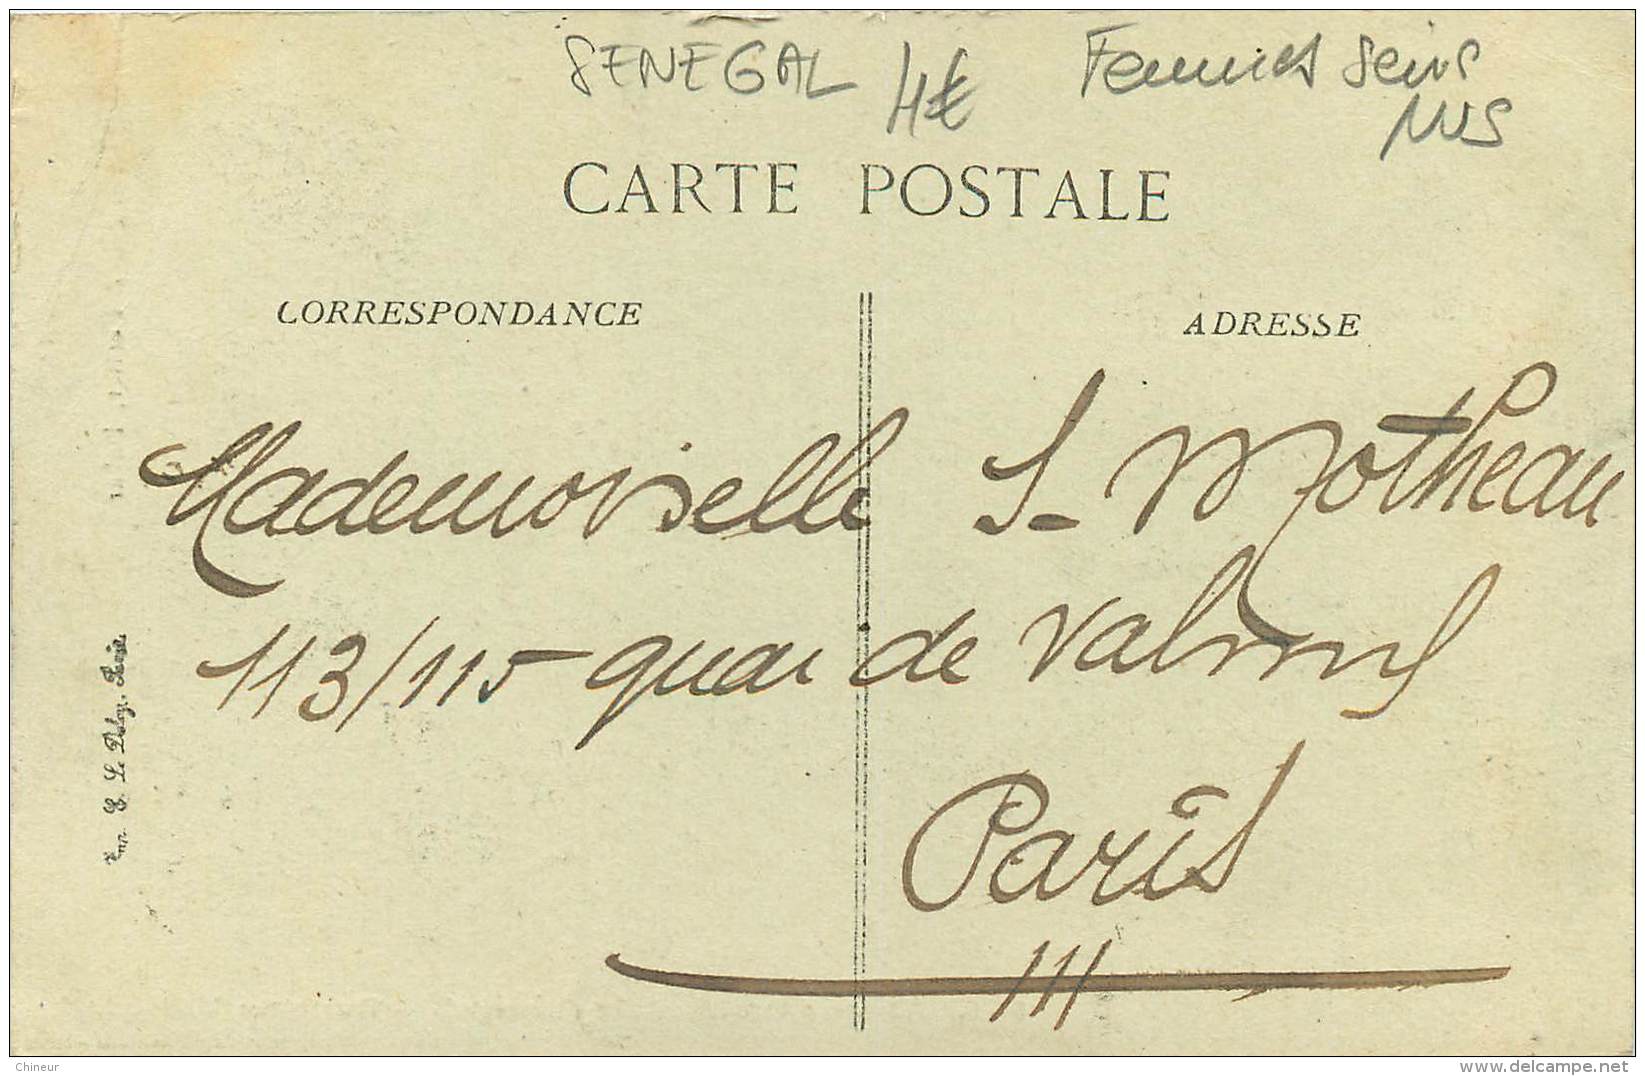 SENEGAL 4€ Femmes seins
nus
CARTE POSTALE
CORRESPONDANCE
ADRESSE
Mademoiselle S. Motheau
113/115 quai de Valmy
Paris
III
Imp. E. Le Deley, Paris
Chineur
delcampe.net